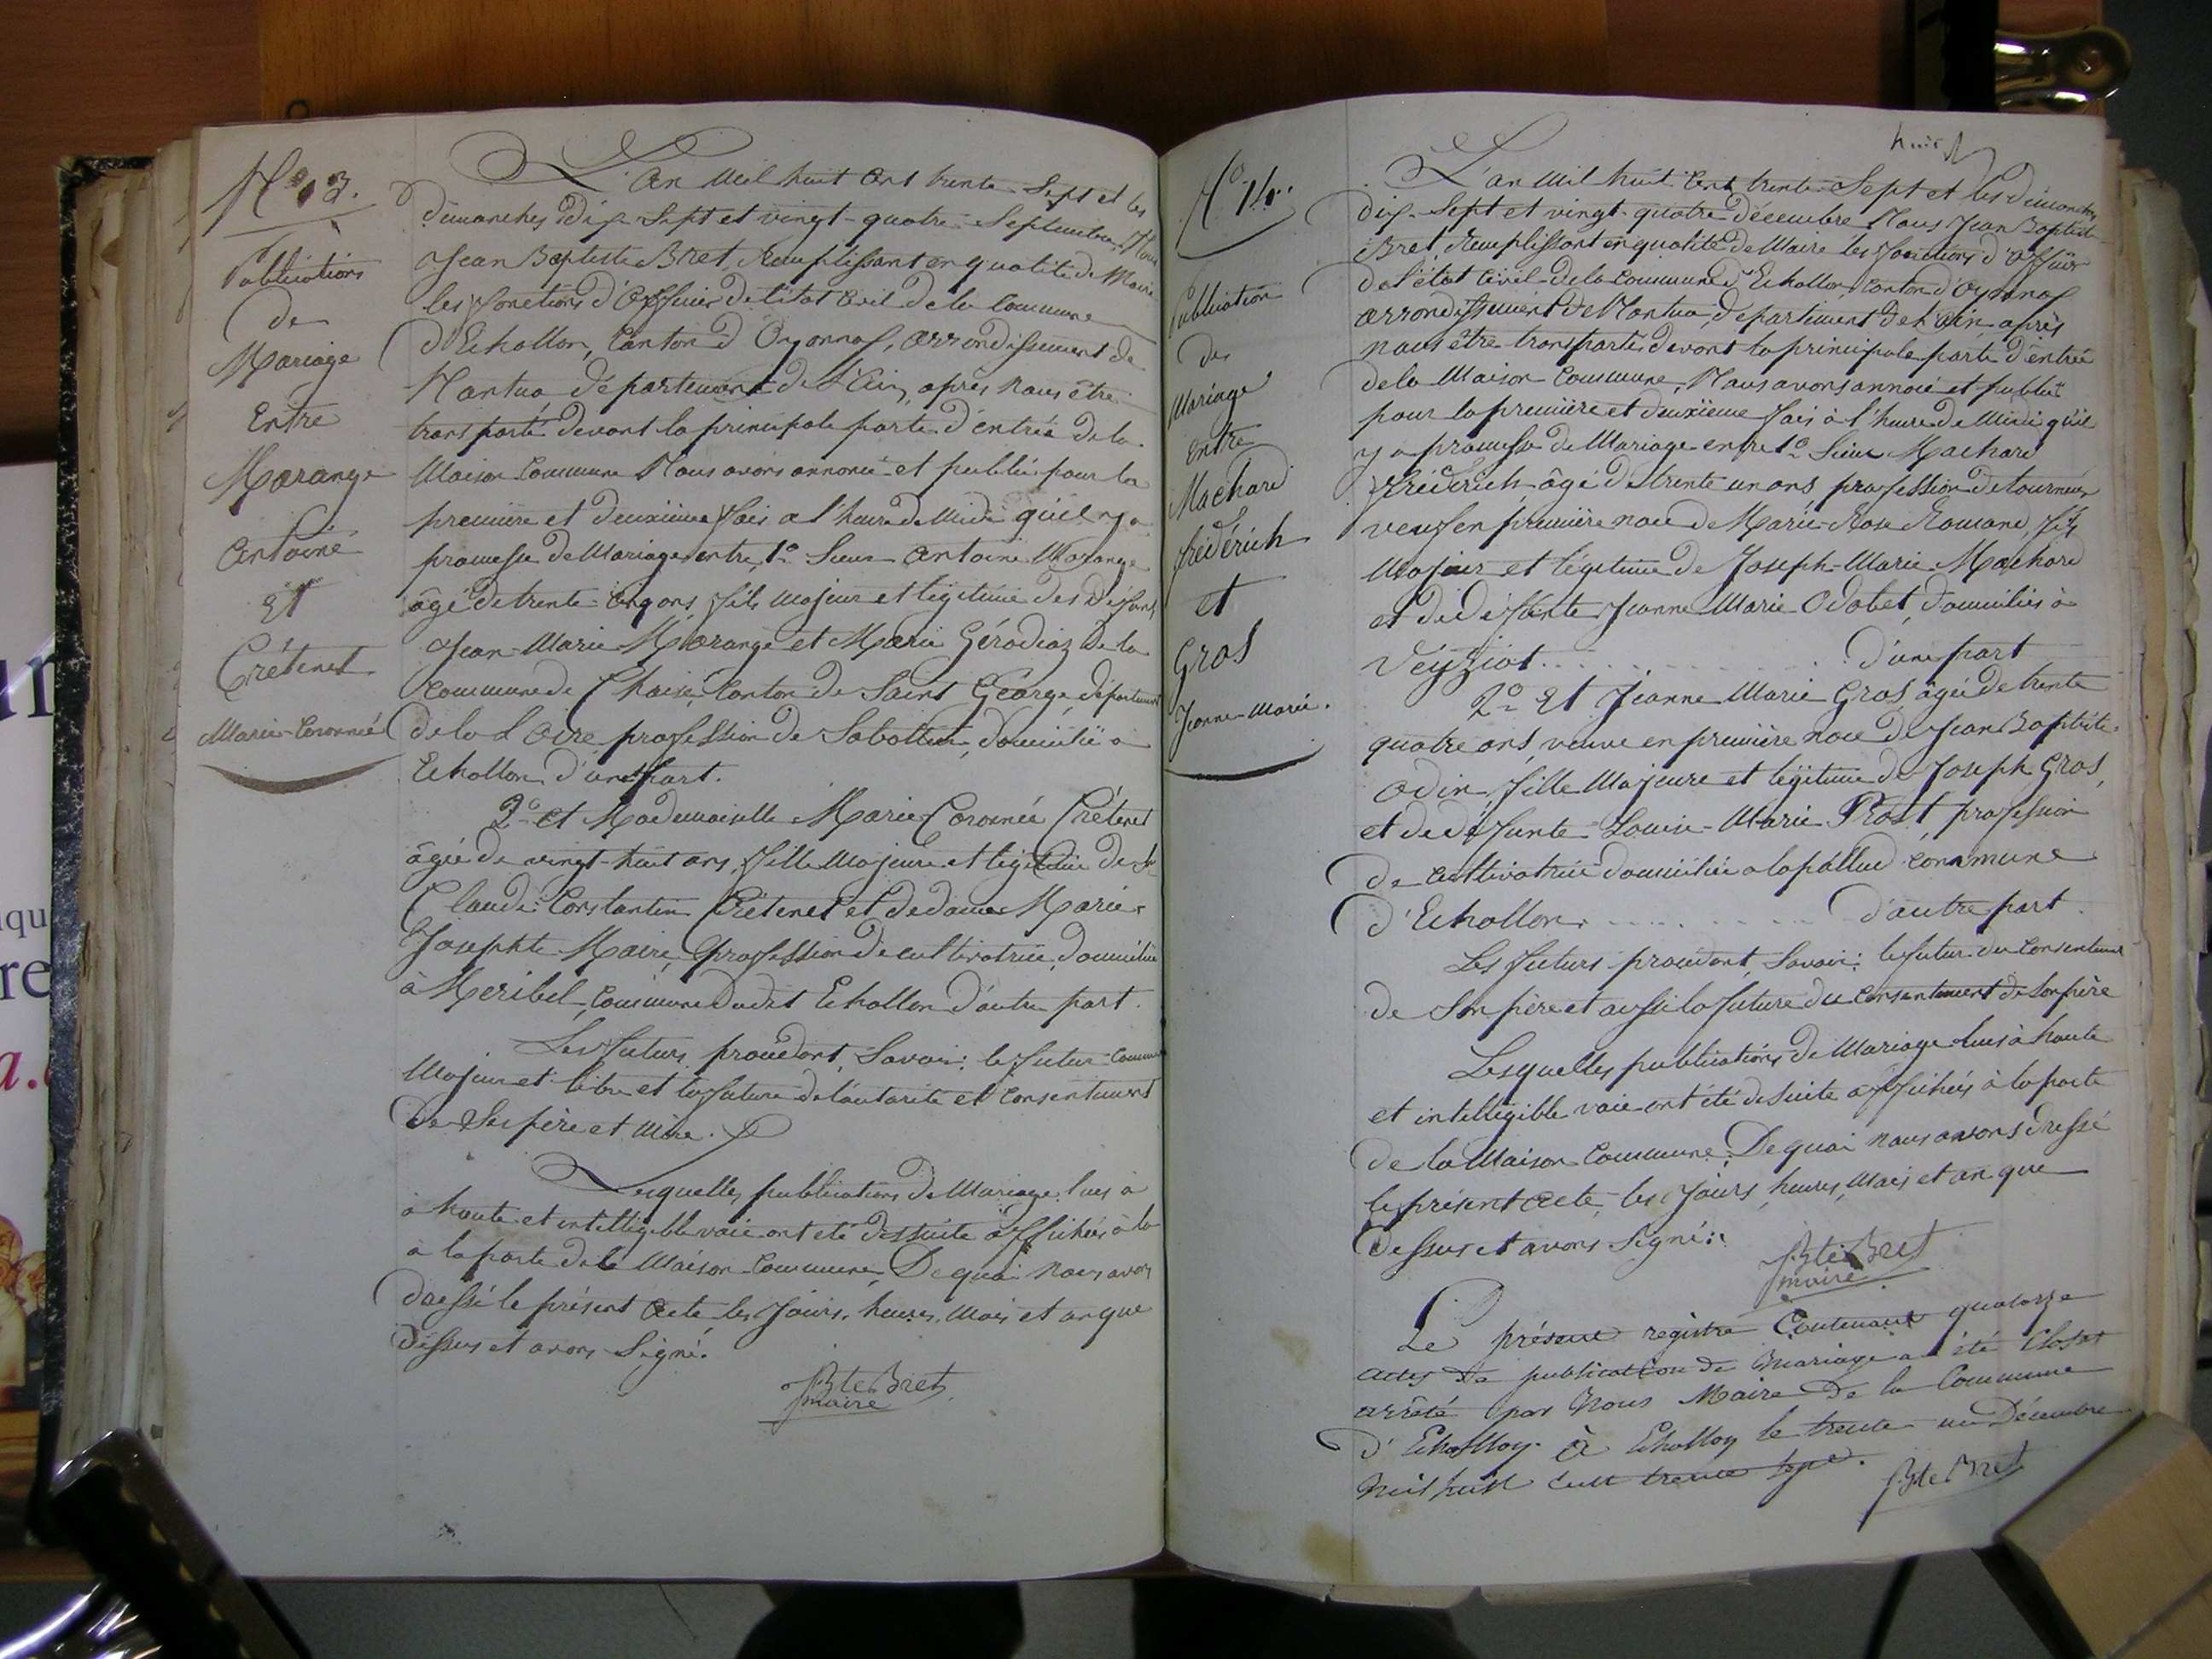 N° 13.
Publications
de
Mariage
Entre
Marange
Antoine
Et
Crétenet
Marie-Coronnée
L'an Mil huit Cent trente-Sept et les
dimanches dix-Sept et vingt-quatre Septembre Nous
Jean Baptiste Bret, Remplissant en qualité de Maire
les fonctions d'Officier de l'état Civil de la Commune
d'Echallon, Canton d'Oyonnax, arrondissement de
Nantua département de l'Ain, après nous être
transporté devant la principale porte d'entrée de la
Maison Commune Nous avons annoncé et publié pour la
première et deuxième fois à l'heure de Midi qu'il y a
promesse de Mariage entre, 1° Sieur Antoine Marange
âgé de trente-cinq ans, fils Majeur et légitime des défunts
Jean-Marie Marange et Marie Gérodiaz de la
Commune de Chaise, Canton de Saint George, département
de la Loire, profession de Sabottier, domicilié à
Echallon d'une part.
2° et Mademoiselle Marie Coronnée Crétenet
âgée de vingt-huit ans, fille Majeure et légitime de Sr
Claude Constantin Crétenet et de dame Marie-
Josephte Maire, profession de cultivatrice, domiciliée
à Meribel, Commune dudit Echallon d'autre part.
Les futurs procédant, Savoir: le futur comme
Majeur et libre et la future de l'autorité et Consentement
de Ses père et Mère.
Lesquelles publications de Mariage lues à
à haute et intelligible voie ont été desuite affichées à la
à la porte de la Maison Commune, De quoi nous avons
dressé le présent acte les jours, heures, Mois et an que
dessus et avons Signé.
JBte Bret
maire
huit
N° 14.
Publication
de
Mariage
Entre
Machard
frédérich
et
Gros
Jeanne-Marie.
L'an Mil huit Cent trente-Sept et les dimanches
dix-Sept et vingt-quatre décembre Nous Jean Baptiste
Bret, Remplissant en qualité de Maire les fonctions d'Officier
de l'état Civil de la Commune d'Echallon, Canton d'Oyonnax
arrondissement de Nantua, département de l'Ain, après
nous être transporté devant la principale porte d'entrée
de la Maison Commune, Nous avons annocé et publié
pour la première et deuxième fois à l'heure de Midi qu'il
y a promesse de Mariage entre 1° Sieur Machard
frédérich, âgé de trente un ans profession de tourneur
veuf en première noce de Marie-Rose Romand, fils
Majeur et légitime de Joseph-Marie Machard
et de défunte Jeanne Marie Odobet, domiciliés à
Véyziat. . . . . . . . . . . . d'une part
2° Et Jeanne Marie Gros, âgée de trente
quatre ans, veuve en première noce de Jean Baptiste
Odin, fille Majeure et légitime de Joseph Gros,
et de défunte Louise-Marie Prost, profession
de cultivatrice domiciliée à la pallud commune
d'Echallon. . . . . . . . . d'autre part.
Les futurs procédant, Savoir: le futur du Consentement
de Son père et aussi la future du Consentement de Son père
Lesquelles publications de Mariage lues à haute
et intelligible voie ont été desuite affichées à la porte
de la Maison Commune, De quoi nous avons dressé
le présent acte les jours, heures, Mois et an que
dessus et avons Signé:
JBte Bret
maire
Le présent registre Contenant quatorze
actes de publication de Mariage a été Clos et
arrêté par Nous Maire de la Commune
d'Echallon. à Echallon le trente un Décembre
Mil huit Cent trente Sept.
JBte Bret